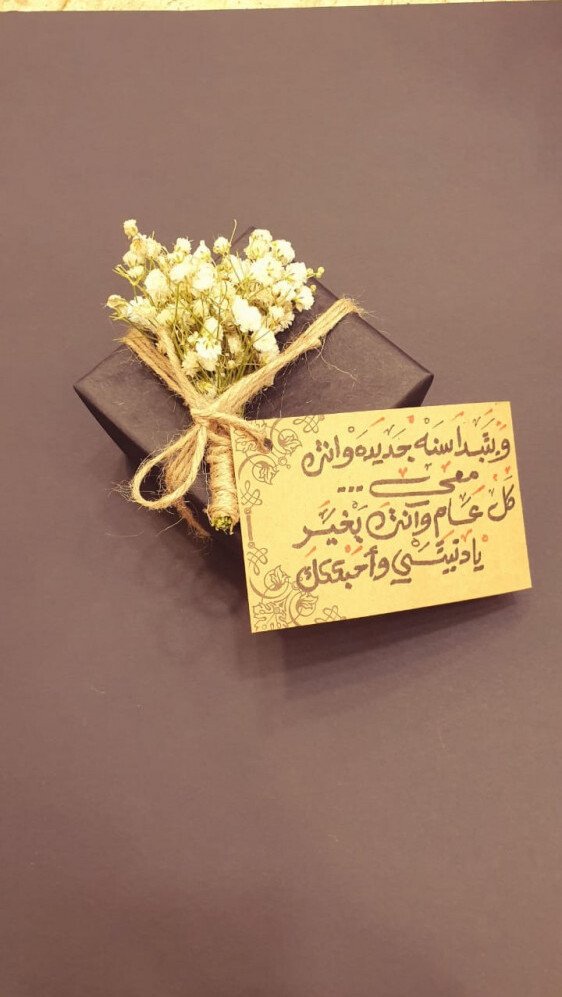 وَبتَبدا سنهْ جَديدَه وَانتِ
معي ...
كَل عَام وَآنتِ بَخيَر
يا دنيَتَي وأحَبكك